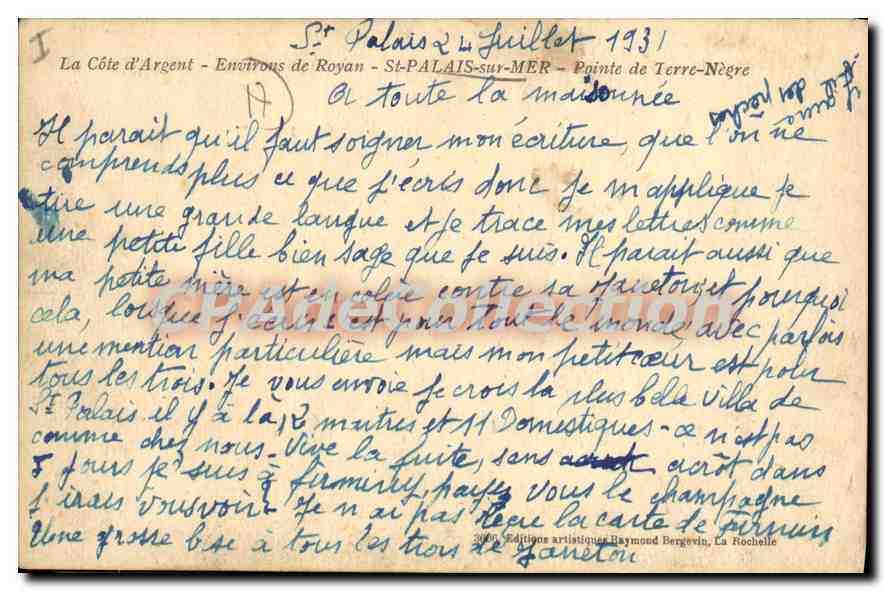 I
St Palais 24 Juillet 1931
La Côte d'Argent - Environs de Royan - St-PALAIS-sur-MER - Pointe de Terre-Nègre
A toute la maisonnée
des pêches
Il parait qu'il faut soigner mon écriture, que l'on ne
comprends plus ce que j'écris donc je m'applique je
tire une grande langue et je trace mes lettres comme
une petite fille bien sage que je suis. Il parait aussi que
ma petite mère est en colère contre sa Janeton et pourquoi
cela, lorsque j'écris c'est pour tout le monde avec parfois
une mention particulière mais mon petit cœur est pour
tous les trois. Je vous envoie je crois la plus belle villa de
St Palais il y à là 12 maitres et 11 Domestiques - ce n'est pas
comme chez nous - Vive la fuite, sans acrôt dans
5 jours je suis à Firminy, payez vous le champagne
j'irais vous voir. Je n'ai pas reçu la carte de
Une grosse bise à tous les trois de Janeton
3606 Editions artistiques Raymond Bergevin, La Rochelle
CPArteCollection